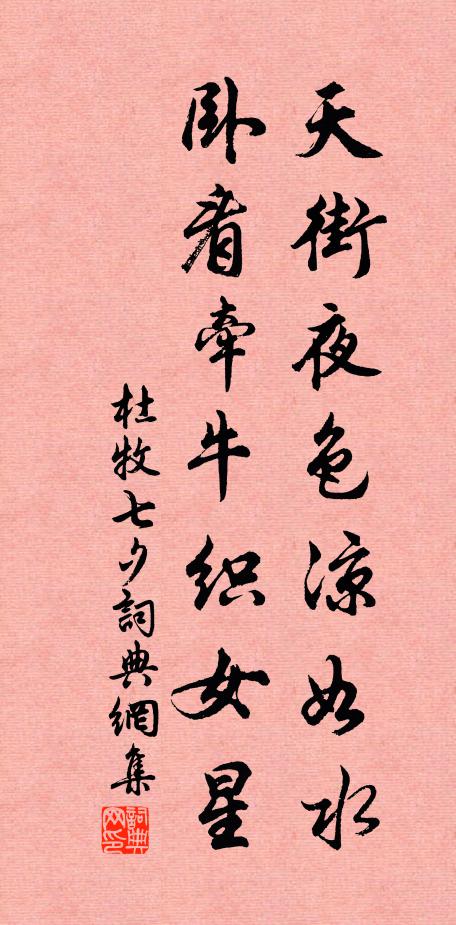 天街夜色涼如水
卧看牽牛织女星
杜牧七夕詞典網集
詞典网印